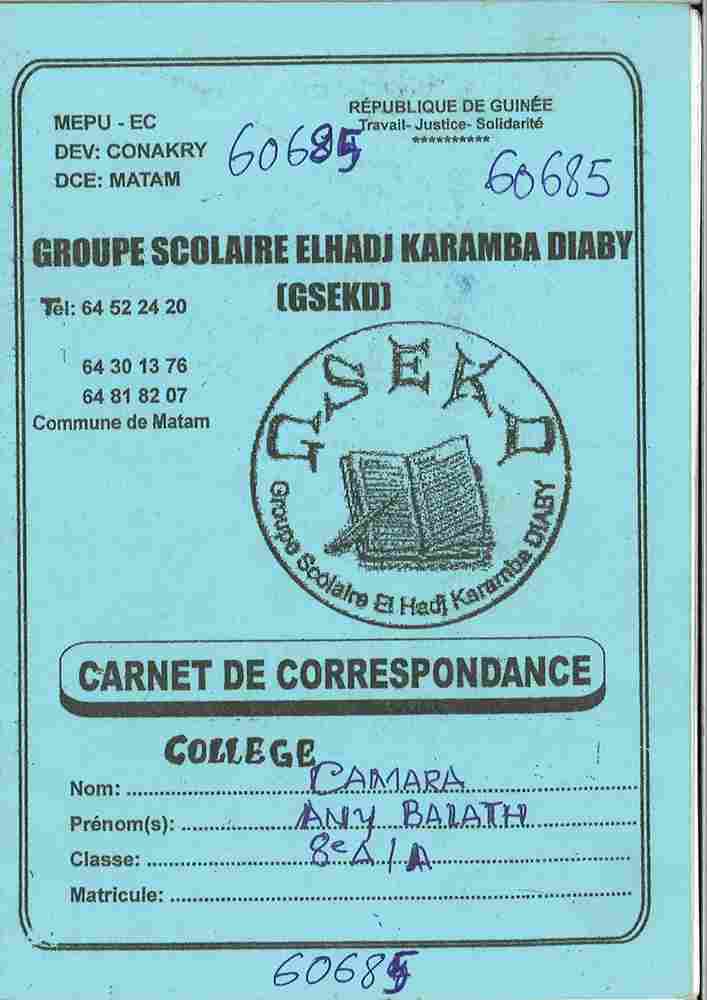 MEPU - EC
DEV: CONAKRY
DCE: MATAM
RÉPUBLIQUE DE GUINÉE
Travail- Justice- Solidarité
**********
60685
60685
GROUPE SCOLAIRE ELHADJ KARAMBA DIABY
(GSEKD)
Tél: 64 52 24 20
64 30 13 76
64 81 82 07
Commune de Matam
GSEKD
Groupe Scolaire El Hadj Karamba DIABY
CARNET DE CORRESPONDANCE
COLLEGE
Nom: CAMARA
Prénom(s): ANY BALATH
Classe: 8e A / A
Matricule:
60685